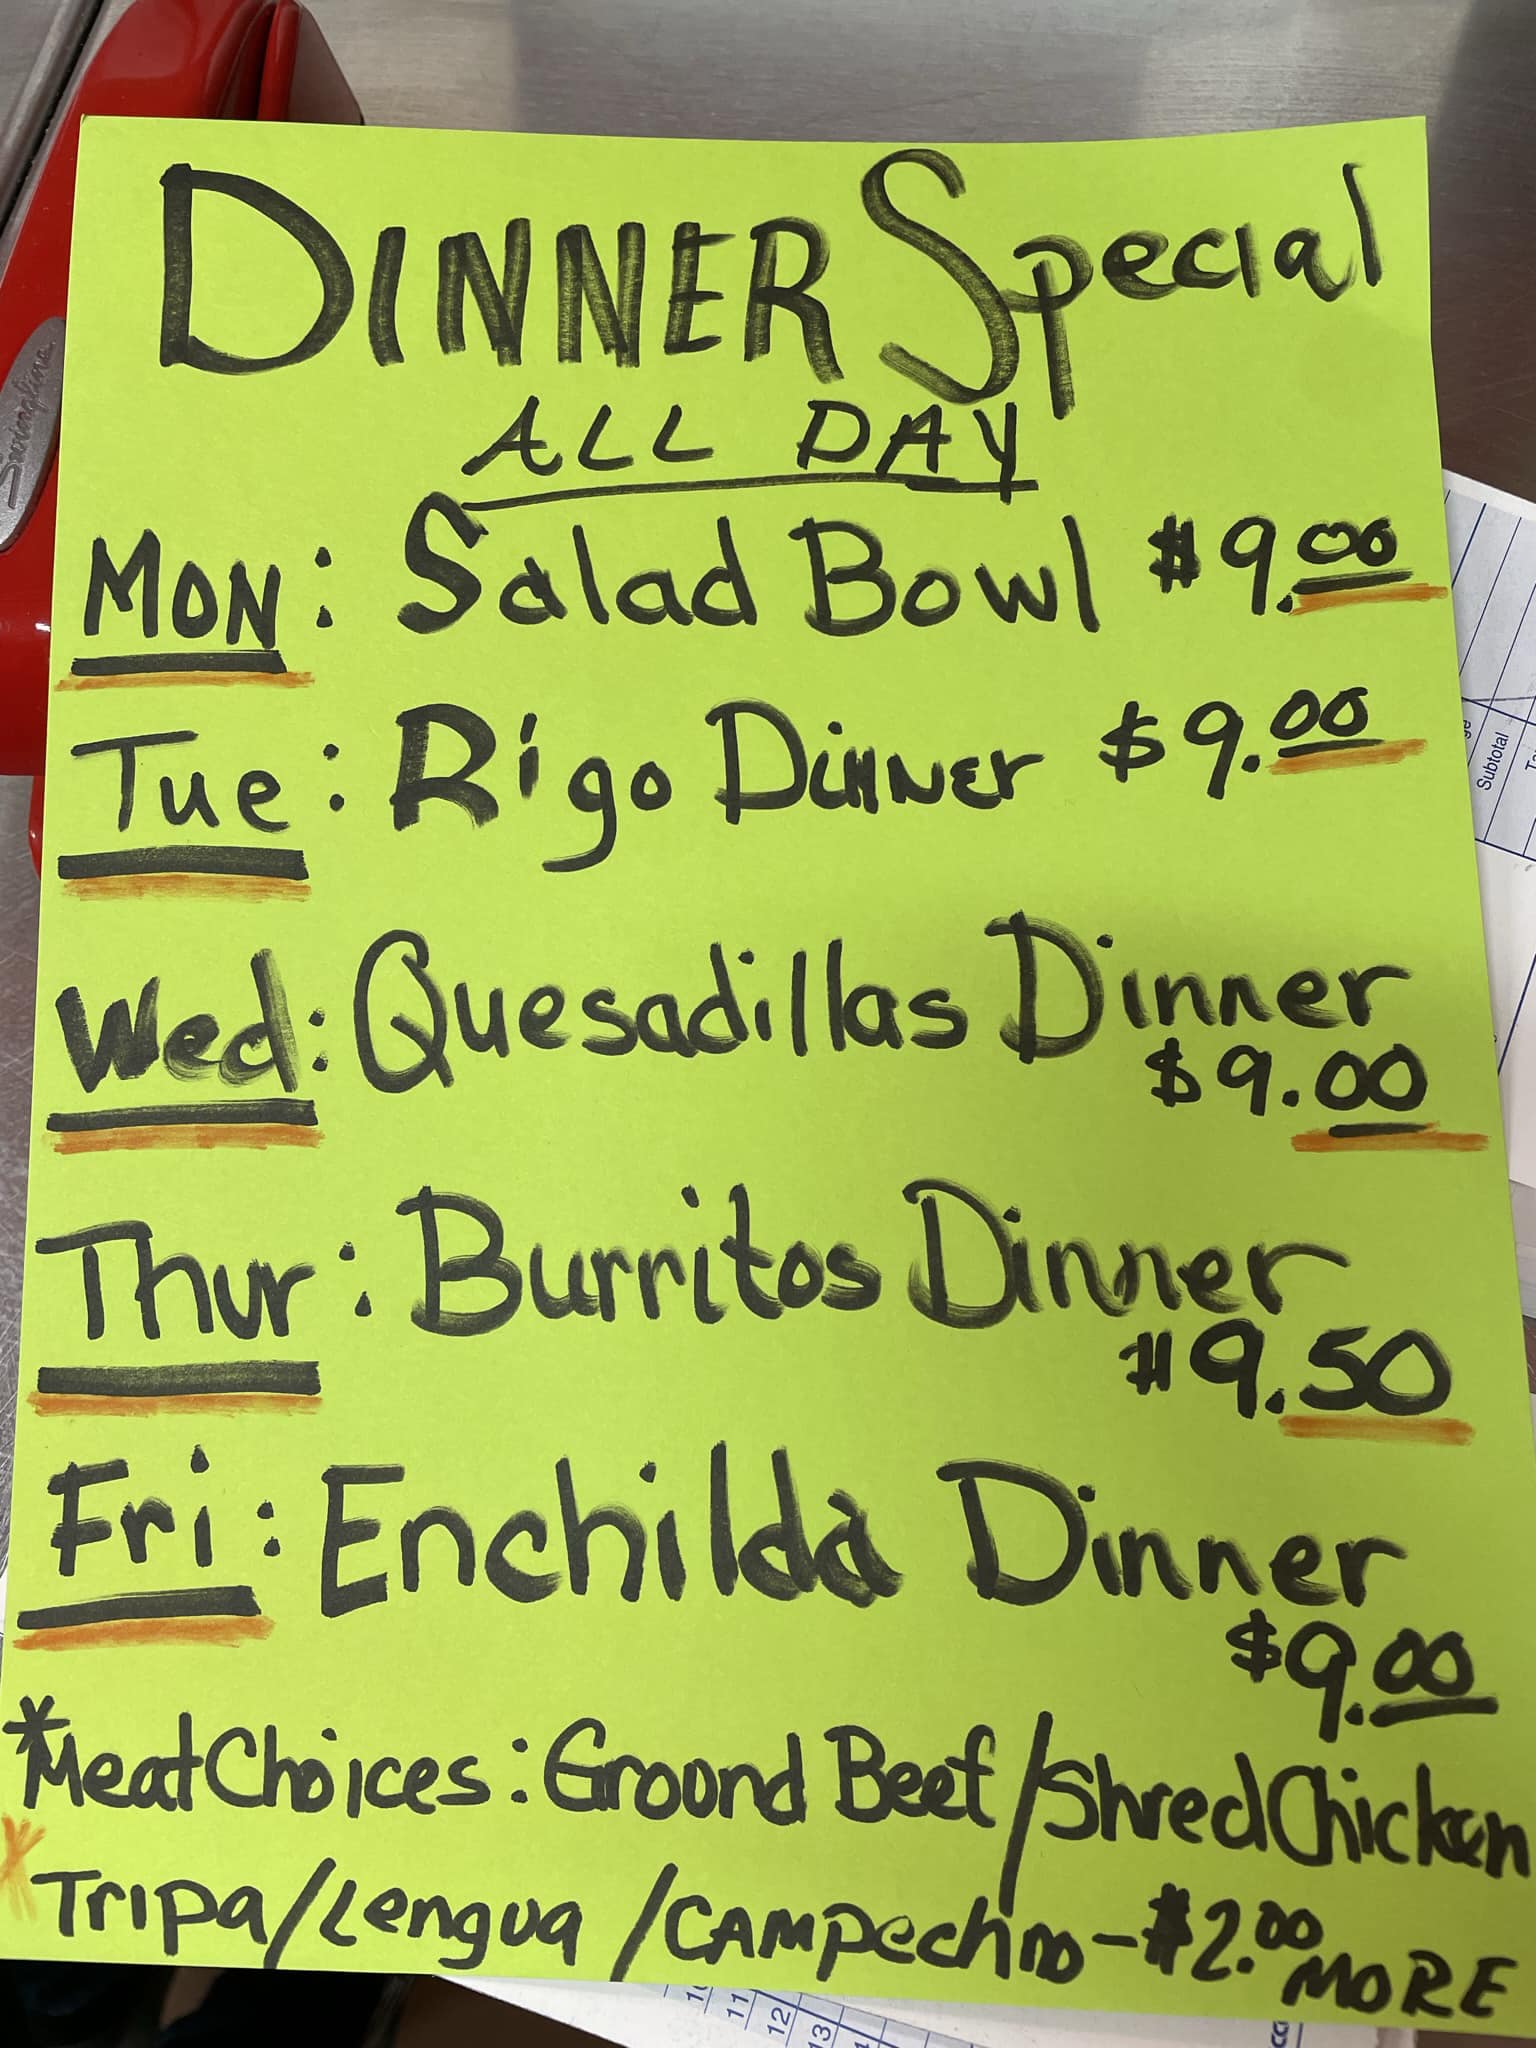 DINNER Special
ALL DAY
MON: Salad Bowl $9.00
Tue: Rigo Dinner $9.00
Wed: Quesadillas Dinner
$9.00
Thur: Burritos Dinner
$9.50
Fri: Enchilda Dinner
$9.00
*Meat Choices: Groond Beef/Shred Chicken
*Tripa/Lengua/CAMPechno-$2.00 MORE
Swingline
Subtotal
10
11
12
13